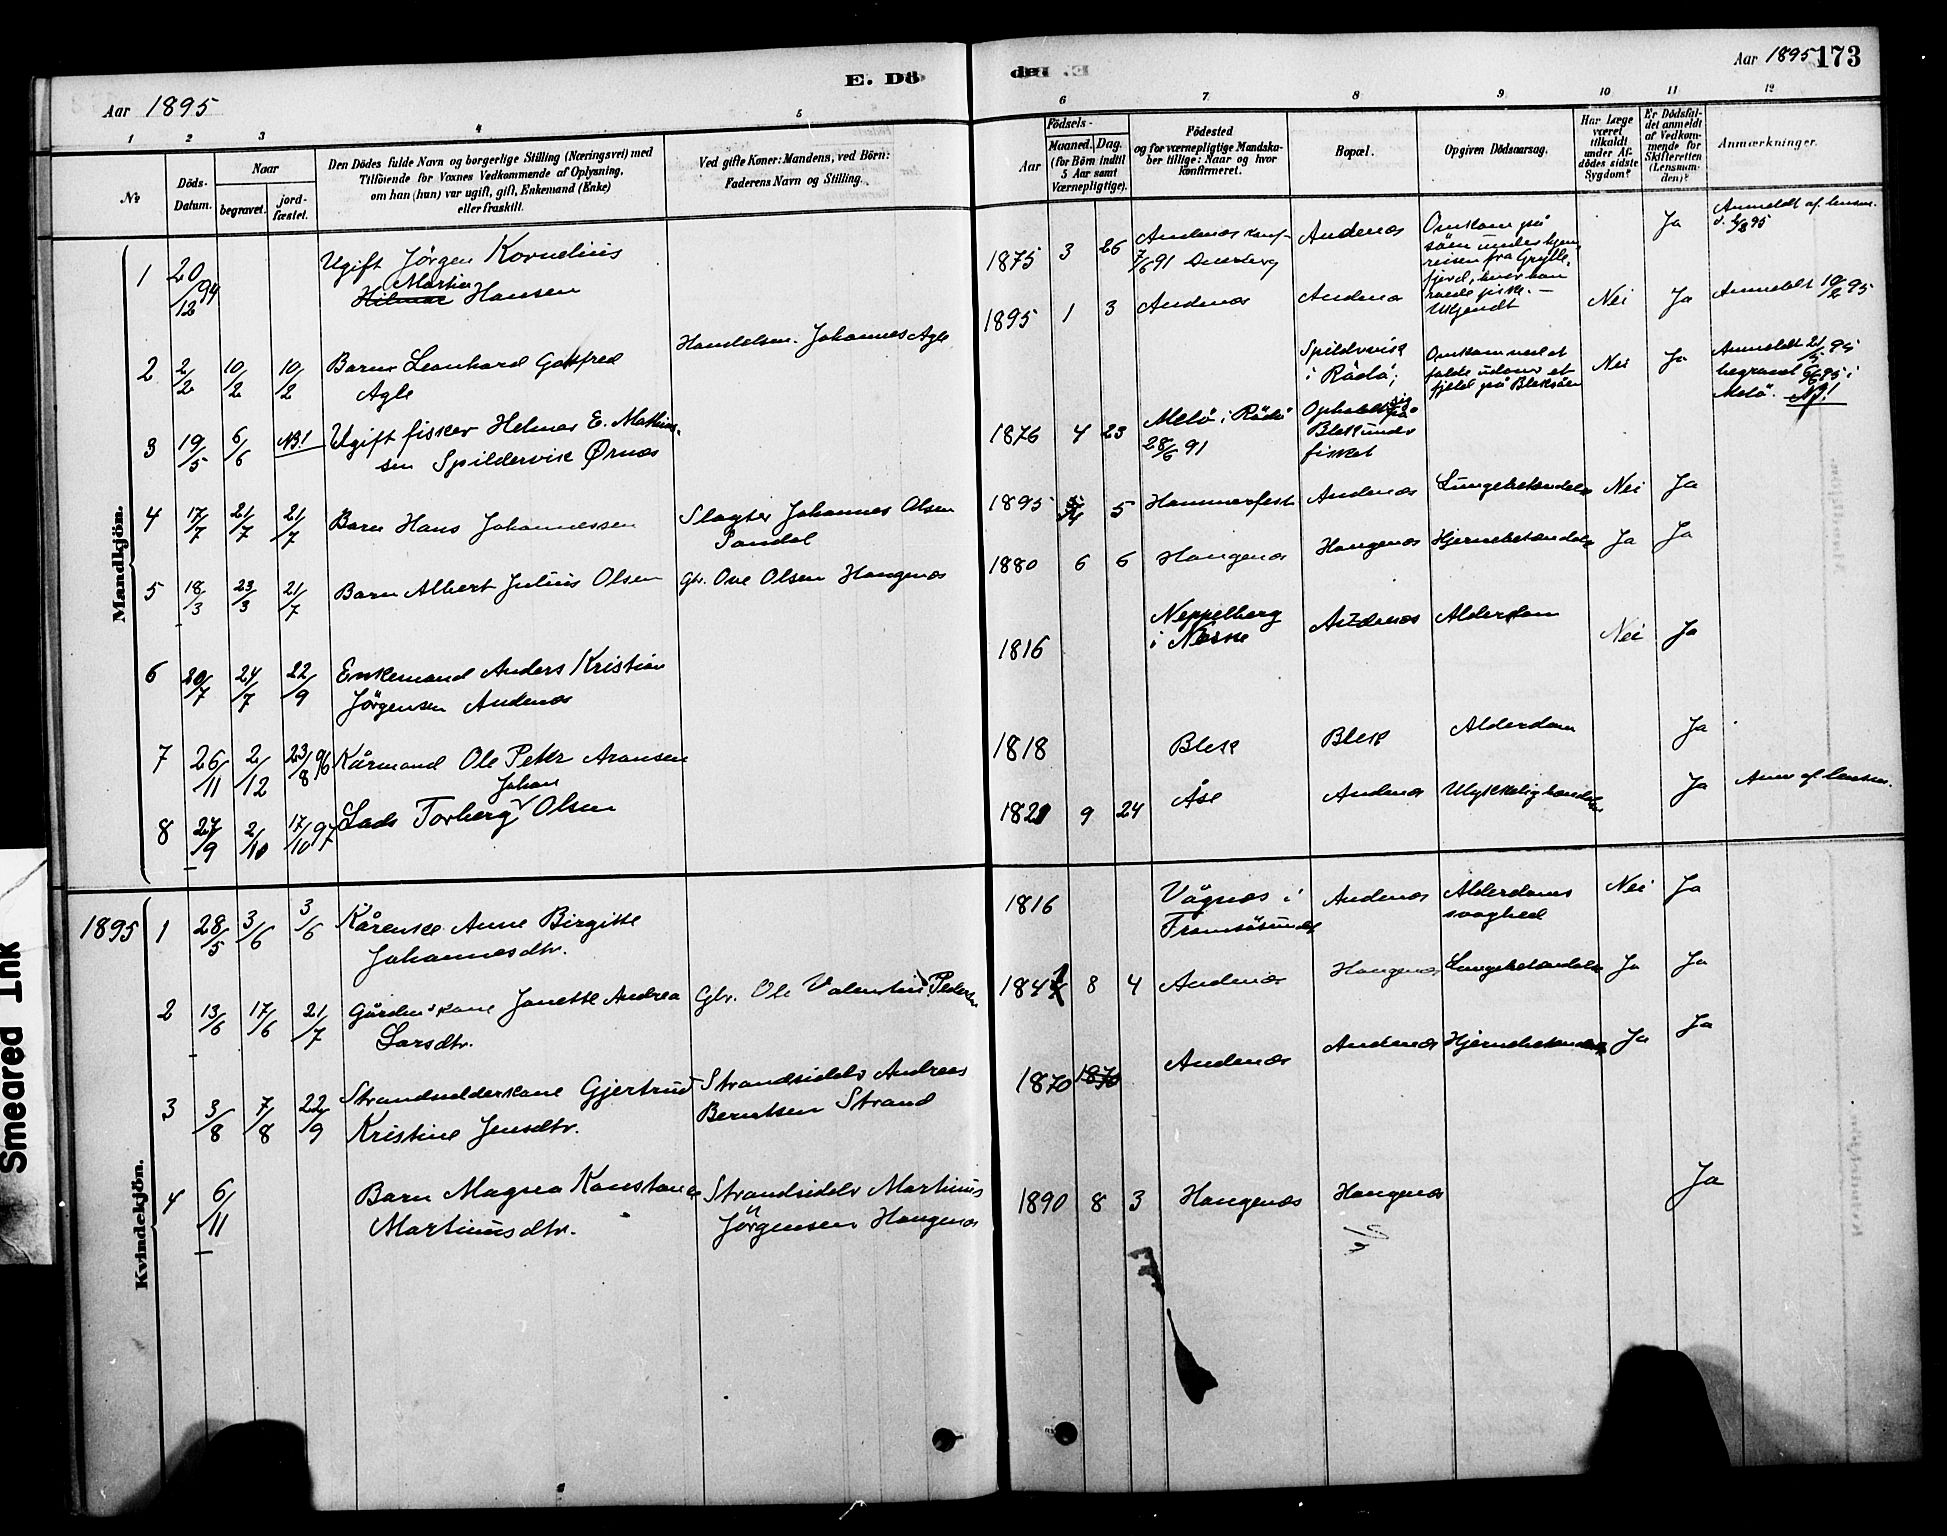 E. Dö
Aar 1895
1 2 3 4 5
№
Döds-Datum.
Naar
begravet.
jord-fæstet.
Den Dödes fulde Navn og borgerlige Stilling (Næringsvei) med
Tilföiende for Voxnes Vedkommende af Oplysning,
om han (hun) var ugift, gift, Enkemand (Enke)
eller fraskilt.
Ved gifte Koner: Mandens, ved Börn:
Faderens Navn og Stilling.
Mandkjön.
1 20/12 94 Ugift Jörgen Kornelius
Martin
Hilmar Hansen
2 2/2 10/2 10/2 Barn Leonhard Gotfred
Agle
Handelsm. Johannes Agle
3 19/5 6/6 NB! Ugift fisker Helmer E. Mathius-
sen Spildervik Ørnes
4 17/7 21/7 21/7 Barn Hans Johannessen
Slagter Johannes Olsen
5 18/3 23/3 21/7 Barn Albert Julius Olsen Gbr. Ove Olsen Haugenes
6 20/7 24/7 22/9 Enkemand Anders Kristian
Jörgensen Andenes
7 26/11 2/12 23/8 96 Kårmand Ole Peter Aronsen
Johan
8 27/9 2/10 17/10 97 Lads Torberg Olsen
Kvindekjön.
1895 1 28/5 3/6 3/6 Kårenke Anne Birgitte
Johannesdtr.
2 13/6 17/6 21/7 Gårdm'skone Janette Andrea Gbr. Ole Valentin Pedersen
Larsdtr.
3 3/8 7/8 22/9 Strandsidderkone Gjertrud Strandsidder Andreas
Kristine Jensdtr. Berntsen Strand
4 6/11 Barn Magna Konstance Strandsidder Martinus
Martinusdtr. Jörgensen Haugenes
Smeared Ink
Aar 1895 173
6 7 8 9 10 11 12
Aar
Födsels-
Maaned. Dag.
(for Börn indtil
5 Aar samt
Værnepligtige).
Födested
og for værnepligtige Mandska-
ber tillige: Naar og hvor
konfirmeret.
Bopæl.
Opgiven Dödsaarsag.
Har Læge
været
tilkaldt
under Af-
dödes sidste
Sygdom?
Er Dödsfal-
det anmeldt
af Vedkom-
mende for
Skifteretten
(Lensman-
den)?
Anmærkninger.
1875 3 26 Andenes konf. Andenes Omkom på Ja Anmeldt af lensm.
7/6 91 söen under hjem-
reisen fra Grylle-
fjord, hvor han
havde fisk. —
1895 1 3 Andenes Andenes Ukjendt Nei Ja Anmeldt 10/2 95
1876 4 23 Melö i Rödö
28/6 91
Spildrvik
i Rödö;
Opholdt sig på
Blek under
fisket
Omkom ved at
falde udover et
fjeld på Bleksöen
Nei Ja
Anmeldt 21/5 95
begravet 6/6 95 i
Melö. NB!
1895 5 Hammerfest Andenes Lungebetændelse Nei Ja
1880 6 6 Haugenes Haugenes Hjernebetændelse Ja Ja
1816 Neppelberg
i Næsne Andenes Alderdom Nei Ja
1818 Blek Blek Alderdom Ja
1821 9 24 Åse Andenes Ulykkelig hændelse Ja Anm. af lensm.
1816 Vågnes i
Tromsösundet Andenes Alderdoms
svaghed Nei Ja
1841 8 4 Andenes Haugenes Lungebetændelse Ja Ja
1870 1870 Andenes Andenes Hjernebetændelse Ja Ja
1890 8 3 Haugenes Haugenes Ja